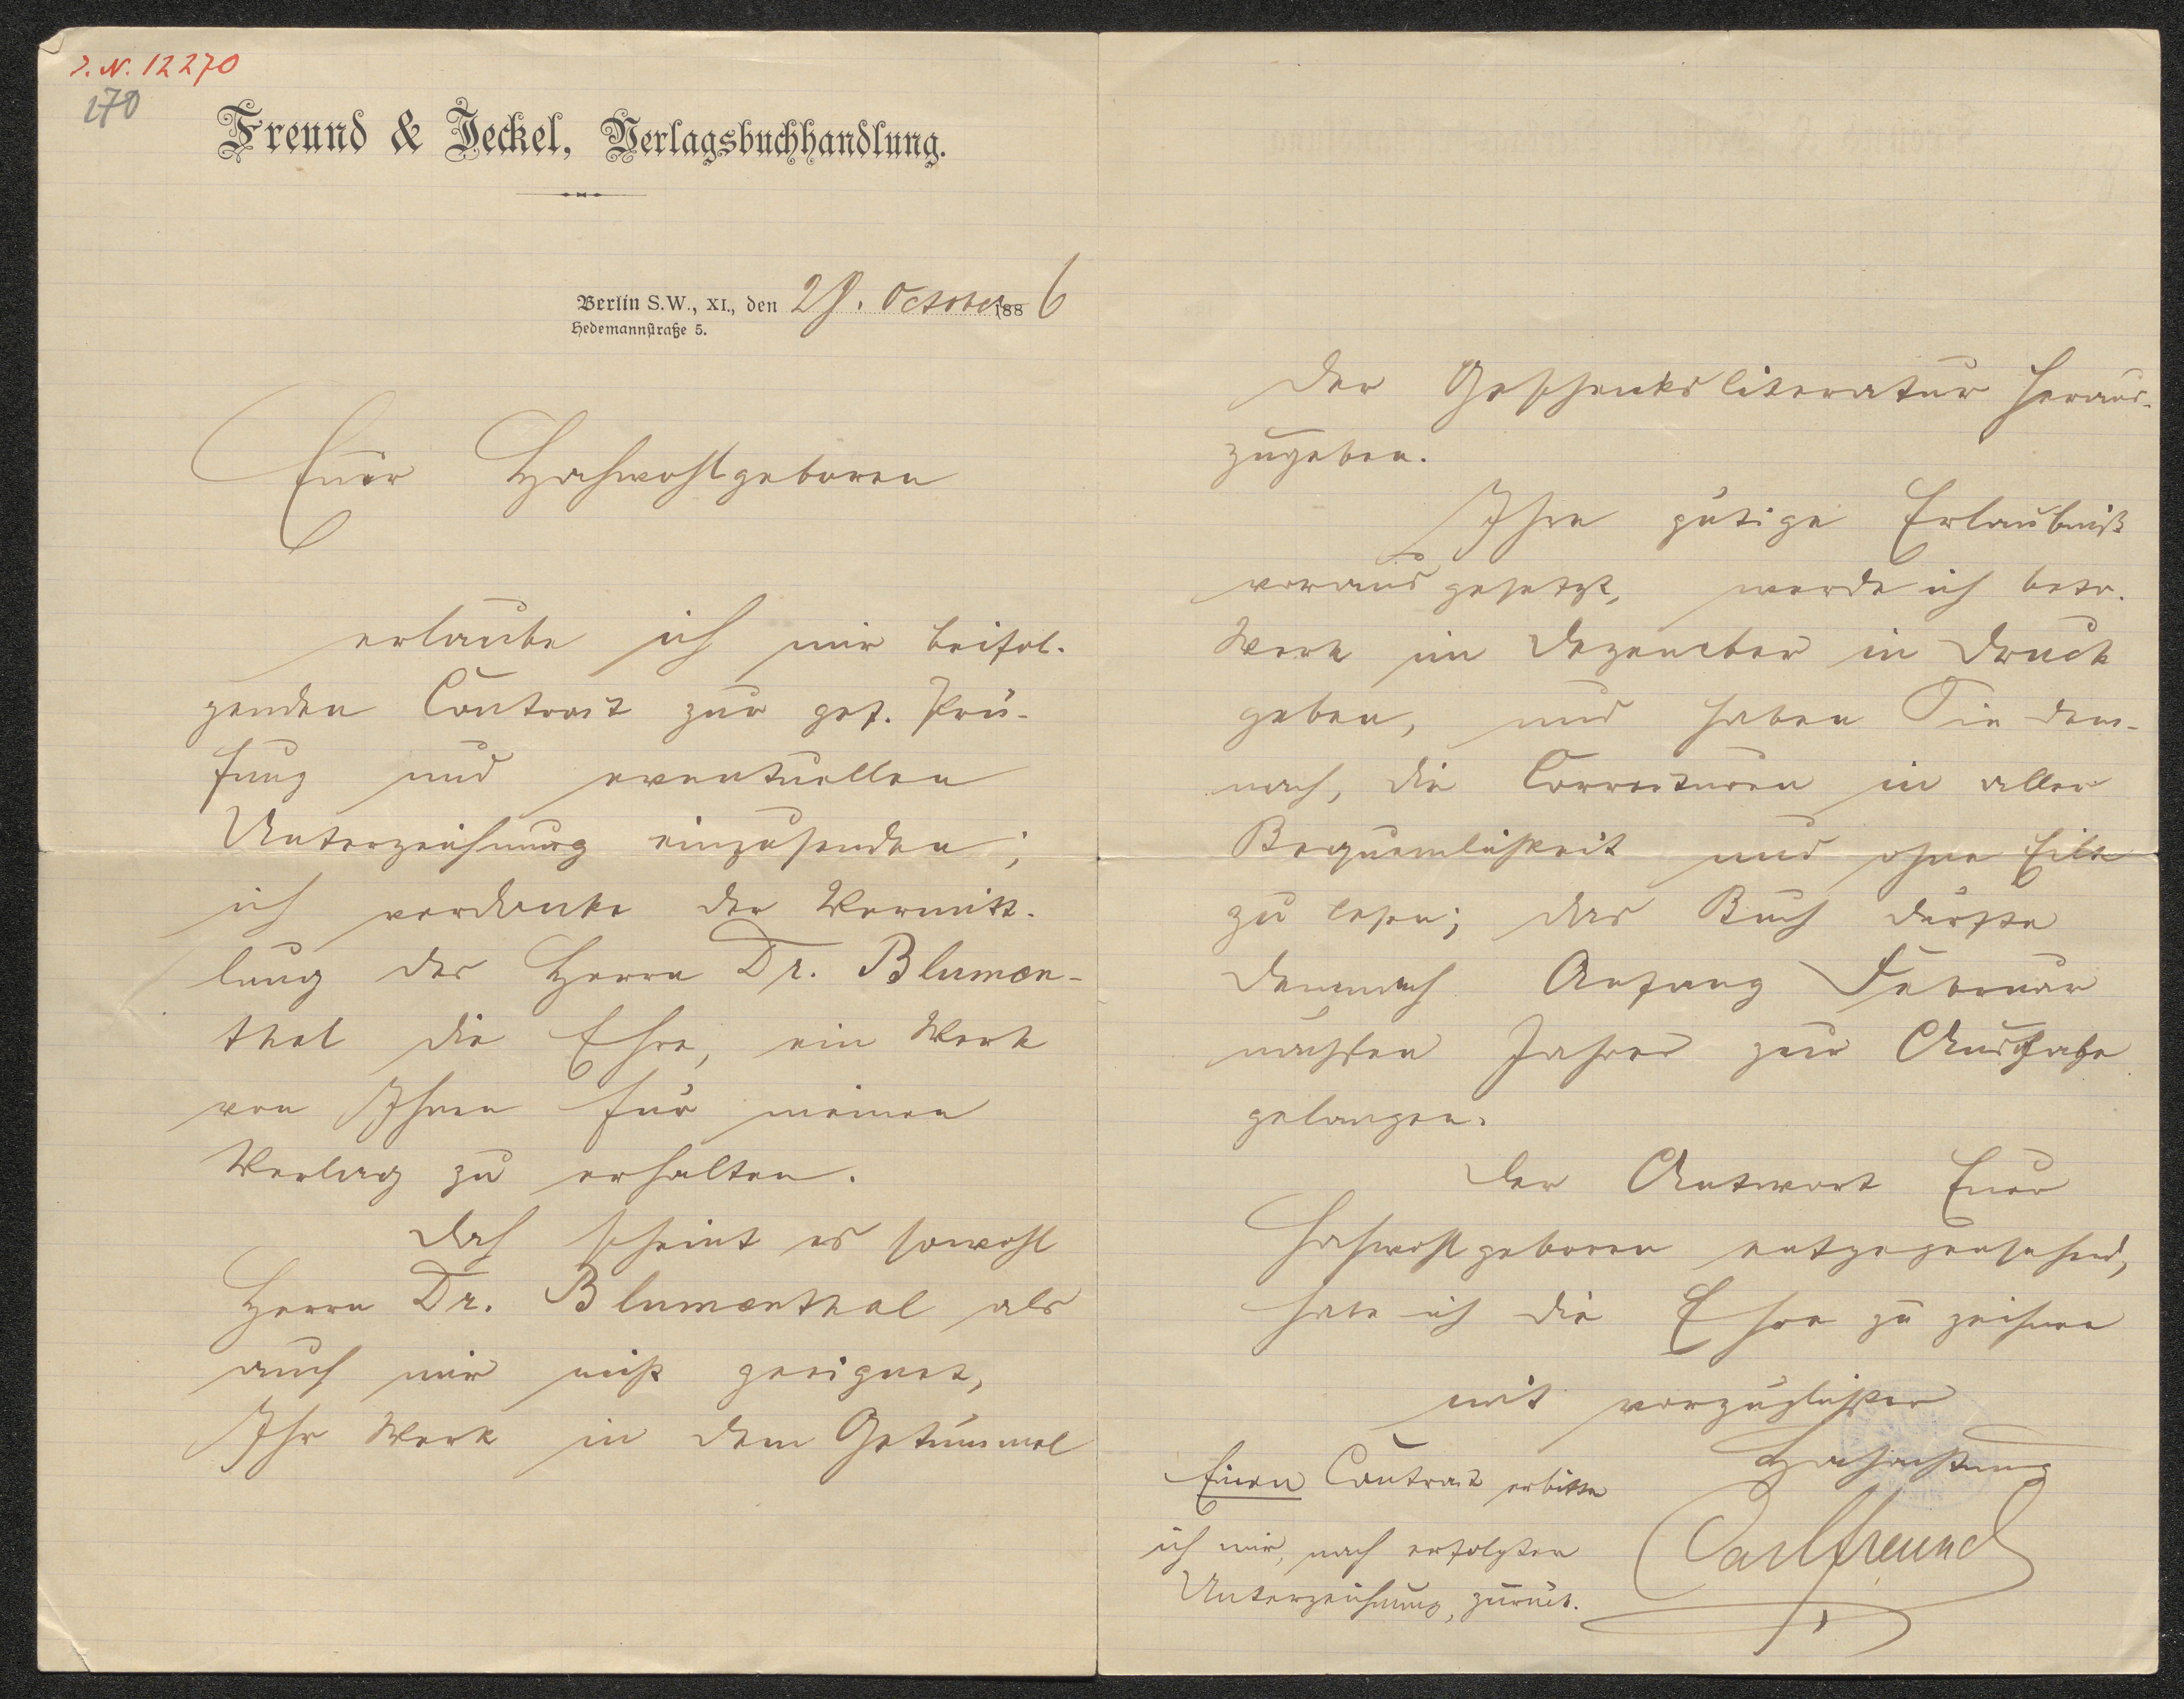 J. N. 12270
170
Freund & Jeckel, Verlagsbuchhandlung.
Berlin S.W., XI., den 29. October 1886
Hedemannstraße 5.
Euer Hochwohlgeboren
erlaube ich mir beifol-
genden Contract zur gef. Prü-
fung und eventuellen
Unterzeichnung einzusenden;
ich verdanke der Vermitt-
lung des Herrn Dr. Blumen-
thal die Ehre, ein Werk
von Ihnen für meinen
Verlag zu erhalten.
Doch scheint es sowohl
Herrn Dr. Blumenthal als
auch mir nicht geeignet,
Ihr Werk in dem Getümmel
der Geschenksliteratur heraus-
zugeben.
Ihre gütige Erlaubniß
vorausgesetzt, werde ich betr.
Werk im Dezember in Druck
geben, und haben Sie dem-
nach, die Correcturen in aller
Bequemlichkeit und ohne Eile
zu lesen; das Buch dürfte
demnach Anfang Februar
nächsten Jahres zur Ausgabe
gelangen.
Der Antwort Euer
Hochwohlgeboren entgegensehend,
habe ich die Ehre zu zeichnen
mit vorzüglicher
Hochachtung
Carl Freund
Einen Contract erbitte
ich mir, nach erfolgter
Unterzeichnung, zurück.